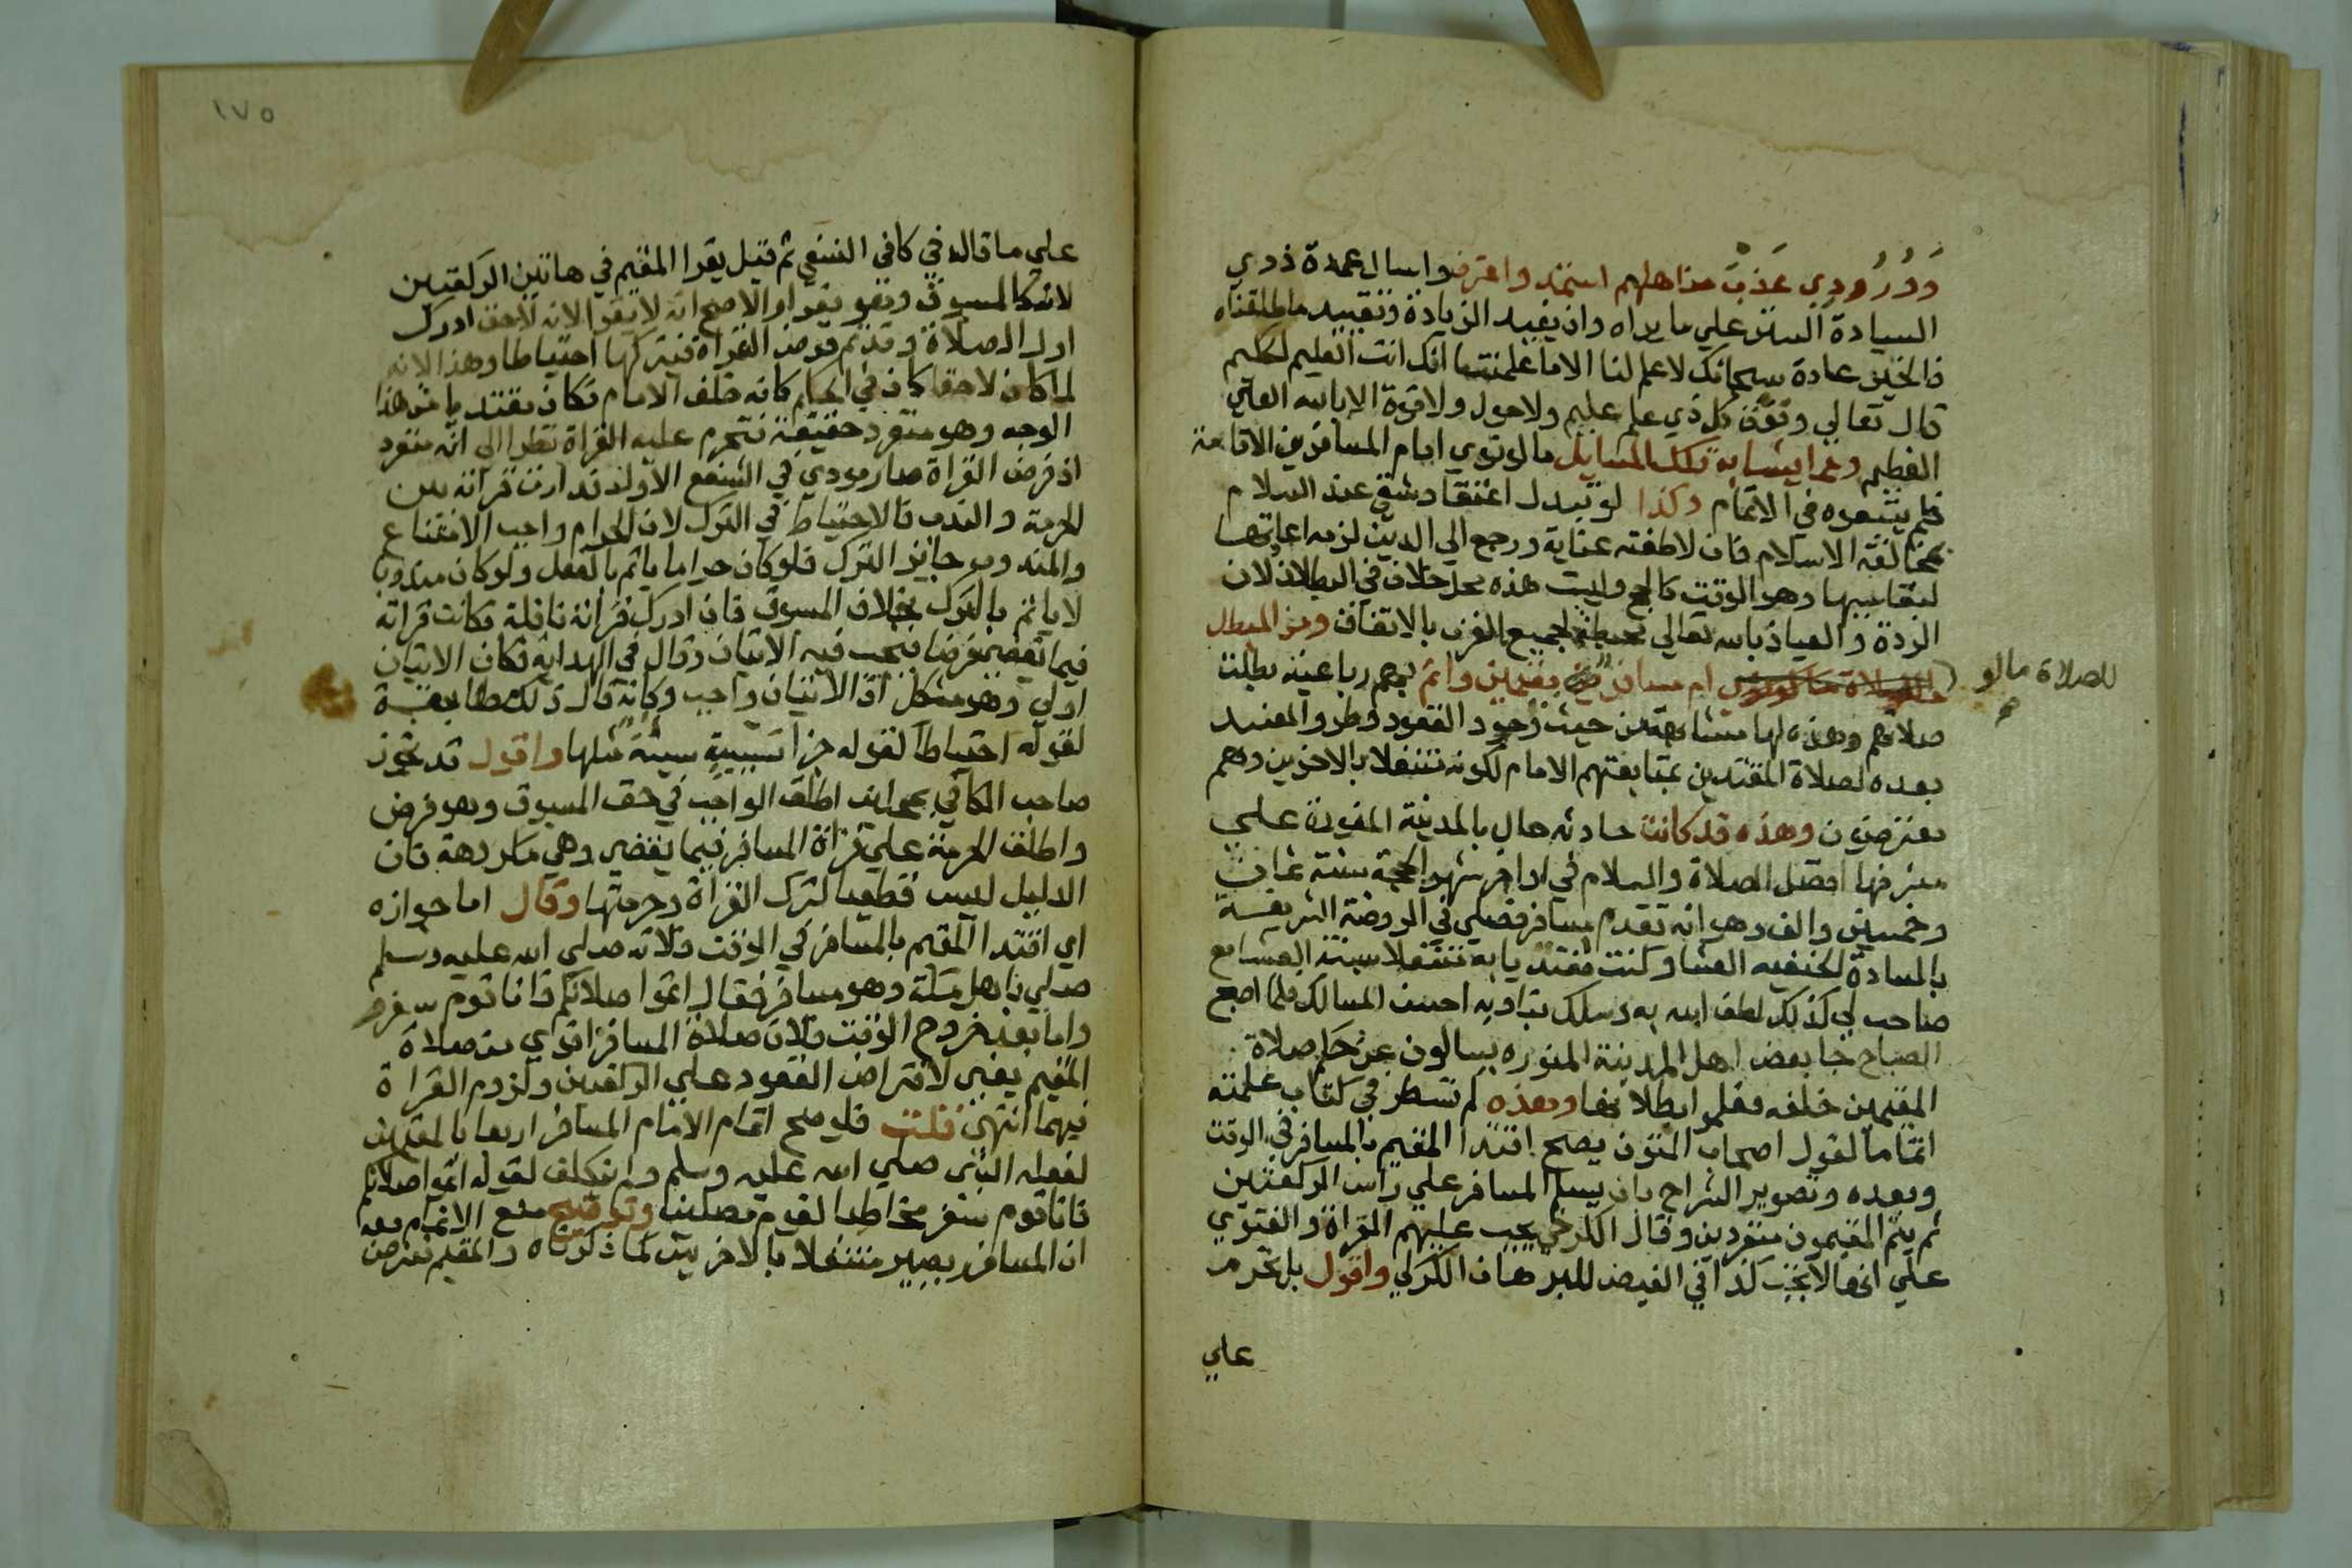 ودرودي عذب مناهلهم استمد واعترف واسال عمدة ذوي
السيادة الستر علي ما يراه وان يفيد الزيادة وتقييد ما اطلقناه
فالخير عادة سبحانك لا علم لنا الا ما علمتنا انك انت العليم الحكيم
قال تعالي وفوق كل ذي علم عليم ولا حول ولا قوة الا بالله العلي
العظيم ومما يشابه تلك المسايل ما لو نوي امام المسافرين الاقامة
فلم يتبعوه في الاتمام وكذا لو تبدل اعتقاد شقي عند السلام
بمخالفة الاسلام فان لاطفته عناية ورجع الي الدين لزمه اعادتها
لبقا سببها وهو الوقت كالحج وليست هذه محل خلاف في البطلان لان
الردة والعياذ بالله تعالي محبطة لجميع القرب بالاتفاق ومن المبطل
للصلاة ما لو
ام مسافر مقيمين واتم بهم رباعية بطلت
صلاتهم وهذه لها مشابهة من حيث وجود القعود وطرو المفسد
بعده لصلاة المقتدين بمتابعتهم الامام لكونه متنفلا بالاخرين وهم
مفترضون وهذه قد كانت حادثه حال بالمدينة المنورة علي
مشرفها افضل الصلاة والسلام في اواخر شهر الحجة سنة ثمان
وخمسين والف وهو انه تقدم مسافر فصلي في الروضة الشريفة
بالسادة الحنفيه العشا وكنت مقتديا به متنفلا سنة العشا مع
صاحب لي كذلك لطف الله به وسلك بنا وبه احسن المسالك فلما اصبح
الصباح جا بعض اهل المدينة المنوره يسالون عن حكم صلاة
المقيمين خلفه فقلوا بطلانها وهذه لم تسطر في كتاب علمته
اتماما لقول اصحاب المتون يصح اقتدا المقيم بالمسافر في الوقت
وبعده وتصوير الشراح بان يسلم المسافر علي راس الركعتين
ثم يتم المقيمون منفردين وقال الكرخي يجب عليهم القراة والفتوي
علي انها لا تجب كذا في الفيض للبرهان الكركي واقول بل تحرم
علي
١٧٥
علي ما قاله في كافي النسفي ثم قيل يقرا المقيم في هاتين الركعتين
لانه كالمسبوق وهو يقرا والاصح انه لا يقرا لانه لاحق ادرك
اول الصلاة وقد تم فرض القراة فيتركها احتياطا وهذا لانه
لما كان لاحقا كان في الحكم كانه خلف الامام فكان مقتديا من هذا
الوجه وهو منفرد حقيقة فتحرم عليه القراة نظرا الي انه منفرد
اذ فرض القراة صار مودي في الشفع الاول فدارت قراته بين
الحرمة والندب فالاحتياط في الترك لان الحرام واجب الامتناع
والمندوب جايز الترك فلو كان حراما ياثم بالفعل ولو كان مندوبا
لا ياثم بالترك بخلاف المسبوق فانه ادرك قراة نافلة فكانت قراته
فيما يقضي فرضا فيجب فيه الاتيان وقال في الهداية فكان الاتيان
اولي وهو مشكل اذ الاتيان واجب وكانه قال ذلك مطابقة
لقوله احتياطا لقوله جزا سيئة سيئة مثلها واقول قد تجوز
صاحب الكافي بحيث اطلق الواجب في حق المسبوق وهو فرض
واطلق الحرمة علي قراة المسافر فيما يقضي وهي مكروهة فان
الدليل ليس قطعيا لترك القراة وحرمتها وقال اما جوازه
اي اقتدا المقيم بالمسافر في الوقت فلانه صلي الله عليه وسلم
صلي باهل مكة وهو مسافر فقال اتموا صلاتكم فانا قوم سفر
واما بعد خروج الوقت فلان صلاة المسافر اقوي من صلاة
المقيم يعني لافتراض القعود علي الركعتين ولزوم القراة
فيهما انتهي قلت فلو صح اتمام الامام المسافر اربعا بالمقيمين
لفعله النبي صلي الله عليه وسلم ولم يتكلف لقوله اتموا صلاتكم
فانا قوم سفر مخاطبا لقوم مصلين وتوضيح منع الاتمام معه
ان المسافر يصير متنفلا بالاخريين لما ذكرناه والمقيم مفترض